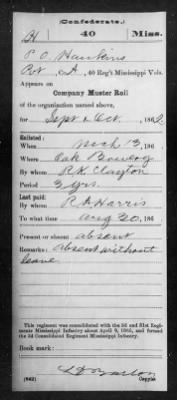 (Confederate.)
H 40 Miss.
P. O. Hawkins
Pvt, Co. A, 40 Reg't Mississippi Vols.
Appears on
Company Muster Roll
of the organization named above,
for Sept & Oct, 1862.
Enlisted:
When Mch 13, 186
Where Oak Bowery
By whom R. K. Clayton
Period 3 yrs.
Last paid:
By whom R A Harris
To what time Aug 20, 186
Present or absent absent
Remarks: Absent without
leave
This regiment was consolidated with the 3d and 31st Regiments Mississippi Infantry about April 9, 1865, and formed the 3d Consolidated Regiment Mississippi Infantry.
Book mark:
(642) Copyist.